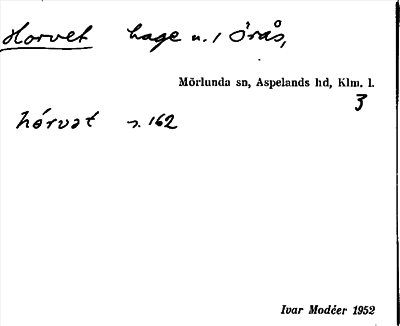 Horvet hage u. / Örås,
Mörlunda sn, Aspelands hd, Klm. l.
3
hórvət s. 162
Ivar Modéer 1952